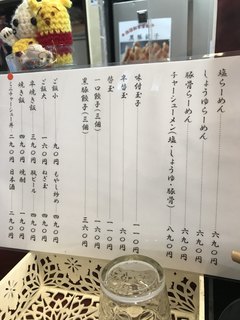 塩らーめん 六九〇円
しょうゆらーめん 六九〇円
豚骨らーめん 七九〇円
チャーシューメン(塩・しょうゆ・豚骨) 八九〇円
味付玉 一一〇円
半替玉 一〇〇円
替玉 一五〇円
一口餃子(三個)
黒豚餃子(三個) 三六〇円
ご飯小 九〇円
ご飯大 一六〇円
半焼き飯 三九〇円
焼き飯 四九〇円
ミニチャーシュー丼 二九〇円
もやし炒め 四九〇円
ねぎ玉
瓶ビール 五〇〇円
焼酎 四〇〇円
日本酒 二九〇円